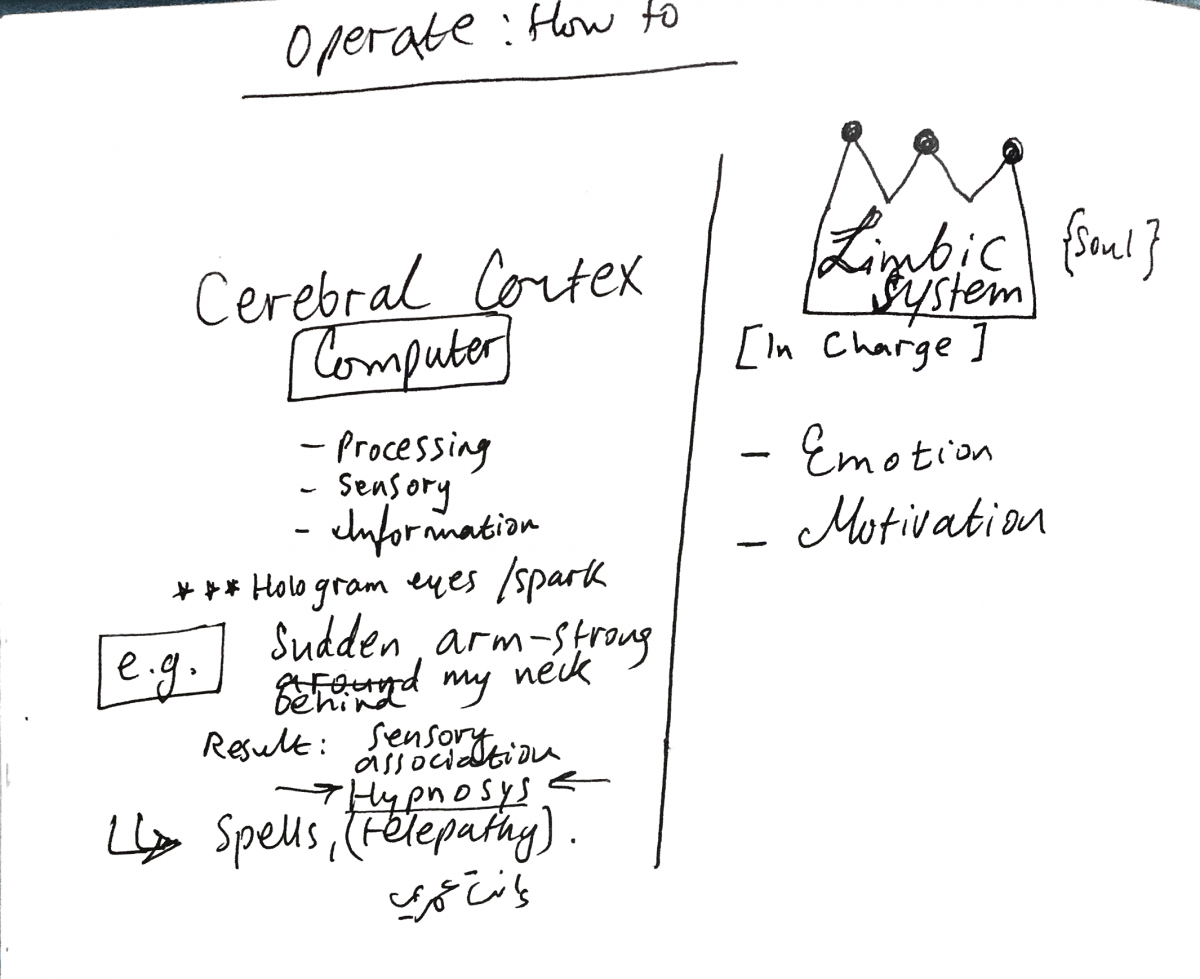 Operate : How to
Cerebral Cortex
Computer
- Processing
- Sensory
- Information
*** Hologram eyes /spark
e.g.
Sudden arm-strong
around my neck
behind
Result: sensory
association
→ Hypnosys ←
Spells, (telepathy).
Limbic
System
{Soul}
[In Charge]
- Emotion
- Motivation